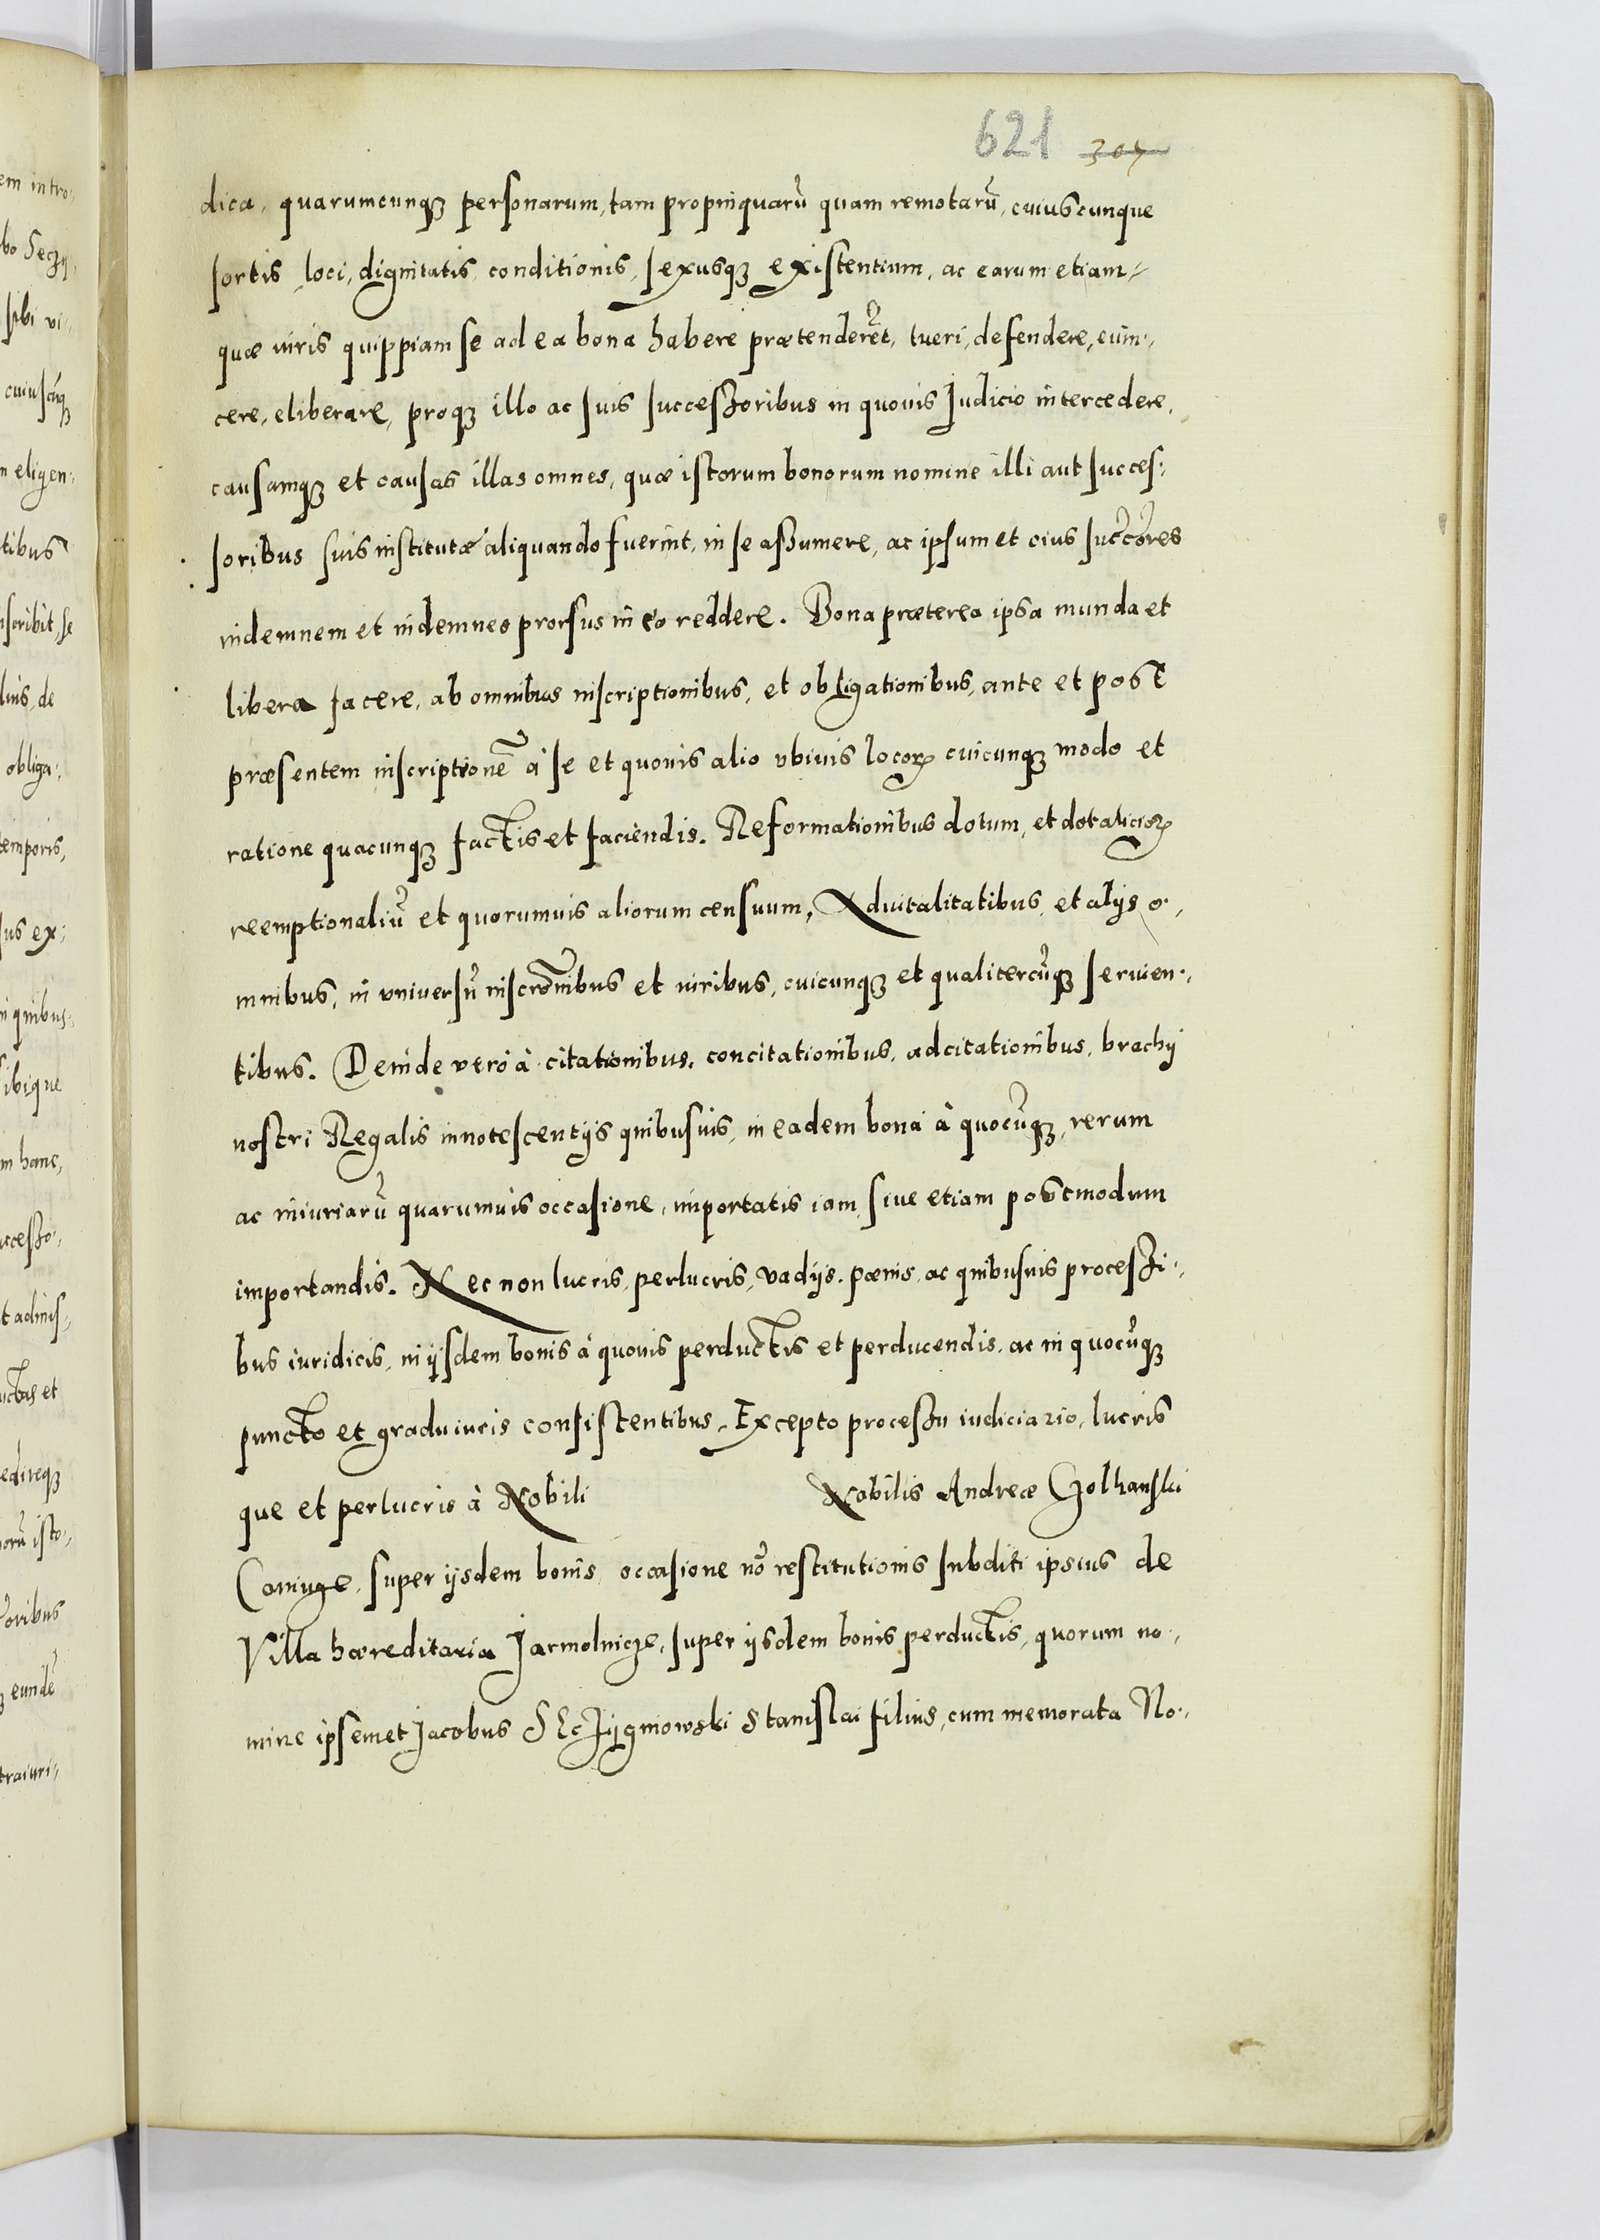 621 307
dica, quarumcunqꝫ personarum, tam propinquarũ quam remotarũ, cuiuscunque
sortis, loci, dignitatis, conditionis, sexusqꝫ existentium, ac earum etiam
quæ iuris quippiam se ad ea bona habere prætenderẽt, tueri, defendere, euin-
cere, eliberare, proqꝫ illo ac suis successoribus in quouis Judicio intercedere,
causamqꝫ et causas illas omnes, quæ istorum bonorum nomine illi aut succes-
soribus suis institutæ aliquando fuerint, in se assumere, ac ipsum et eius succores
indemnem et indemnes prorsus in eo reddere. Bona præterea ipsa munda et
libera facere, ab omnibus inscriptionibus, et obligationibus, ante et post
præsentem inscriptionẽ à se et quouis alio vbiuis locorꝝ cuicunqꝫ modo et
ratione quacunqꝫ factis et faciendis. Reformationibus dotum, et dotaliciorꝝ
reemptionaliũ et quorumuis aliorum censuum, Aduitalitatibus, et alijs o-
mnibus, in vniversũ inscrõnibus et iuribus, cuicunqꝫ et qualitercũqꝫ seruien-
tibus. Deinde verò à citationibus, concitationibus, adcitationibus, brachij
nostri Regalis innotescentijs quibusuis, in eadem bona à quocũqꝫ, rerum
ac iniuriarũ quarumuis occasione, importatis iam, siue etiam postmodum
importandis. Nec non lucris, perlucris, vadijs, pœnis, ac quibusuis processi-
bus iuridicis, in ijsdem bonis à quouis perductis et perducendis, ac in quocũqꝫ
puncto et gradu iuris consistentibus. Excepto processu iudiciario, lucris
que et perlucris à Nobili Nobilis Andreæ Golhanski
Coniuge, super ijsdem bonis, occasione nõ restitutionis subditi ipsius de
Villa hæreditaria Jarmolnicze, super ijsdem bonis perductis, quorum no-
mine ipsemet Jacobus Seczygniowski Stanislai filius, cum memorata No-